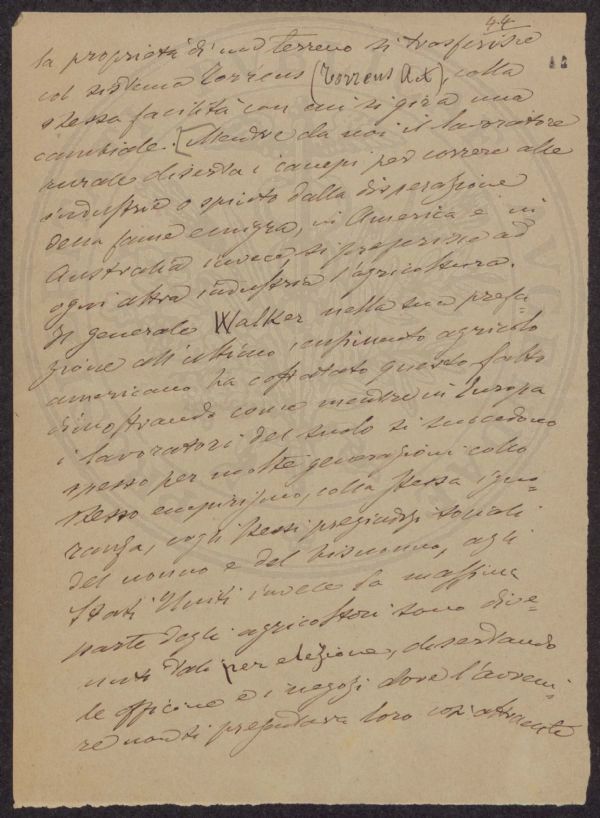 44
la proprietà di un terreno si trasferisce
col sistema Torrens (Torrens Act), colla
stessa facilità con cui si gira una
cambiale. [Mentre da noi il lavoratore
rurale diserta i campi per correre alle
industrie o spinto dalla disperazione
della fame emigra, in America e in
Australia invece, si preferisce ad
ogni altra industria l'agricoltura.
Il generale Walker nella sua prefa-
zione all'ultimo censimento agricolo
americano ha constatato questo fatto
dimostrando come mentre in Europa
i lavoratori del suolo si succedono
spesso per molte generazioni collo
stesso empirismo, colla stessa igno-
ranza, cogli stessi pregiudizi sociali
del nonno e del bisnonno, agli
Stati Uniti invece la massima
parte degli agricoltori sono dive-
nuti tali per elezione, disertando
le officine e i negozi dove l'avveni-
re non si presentava loro così attraente